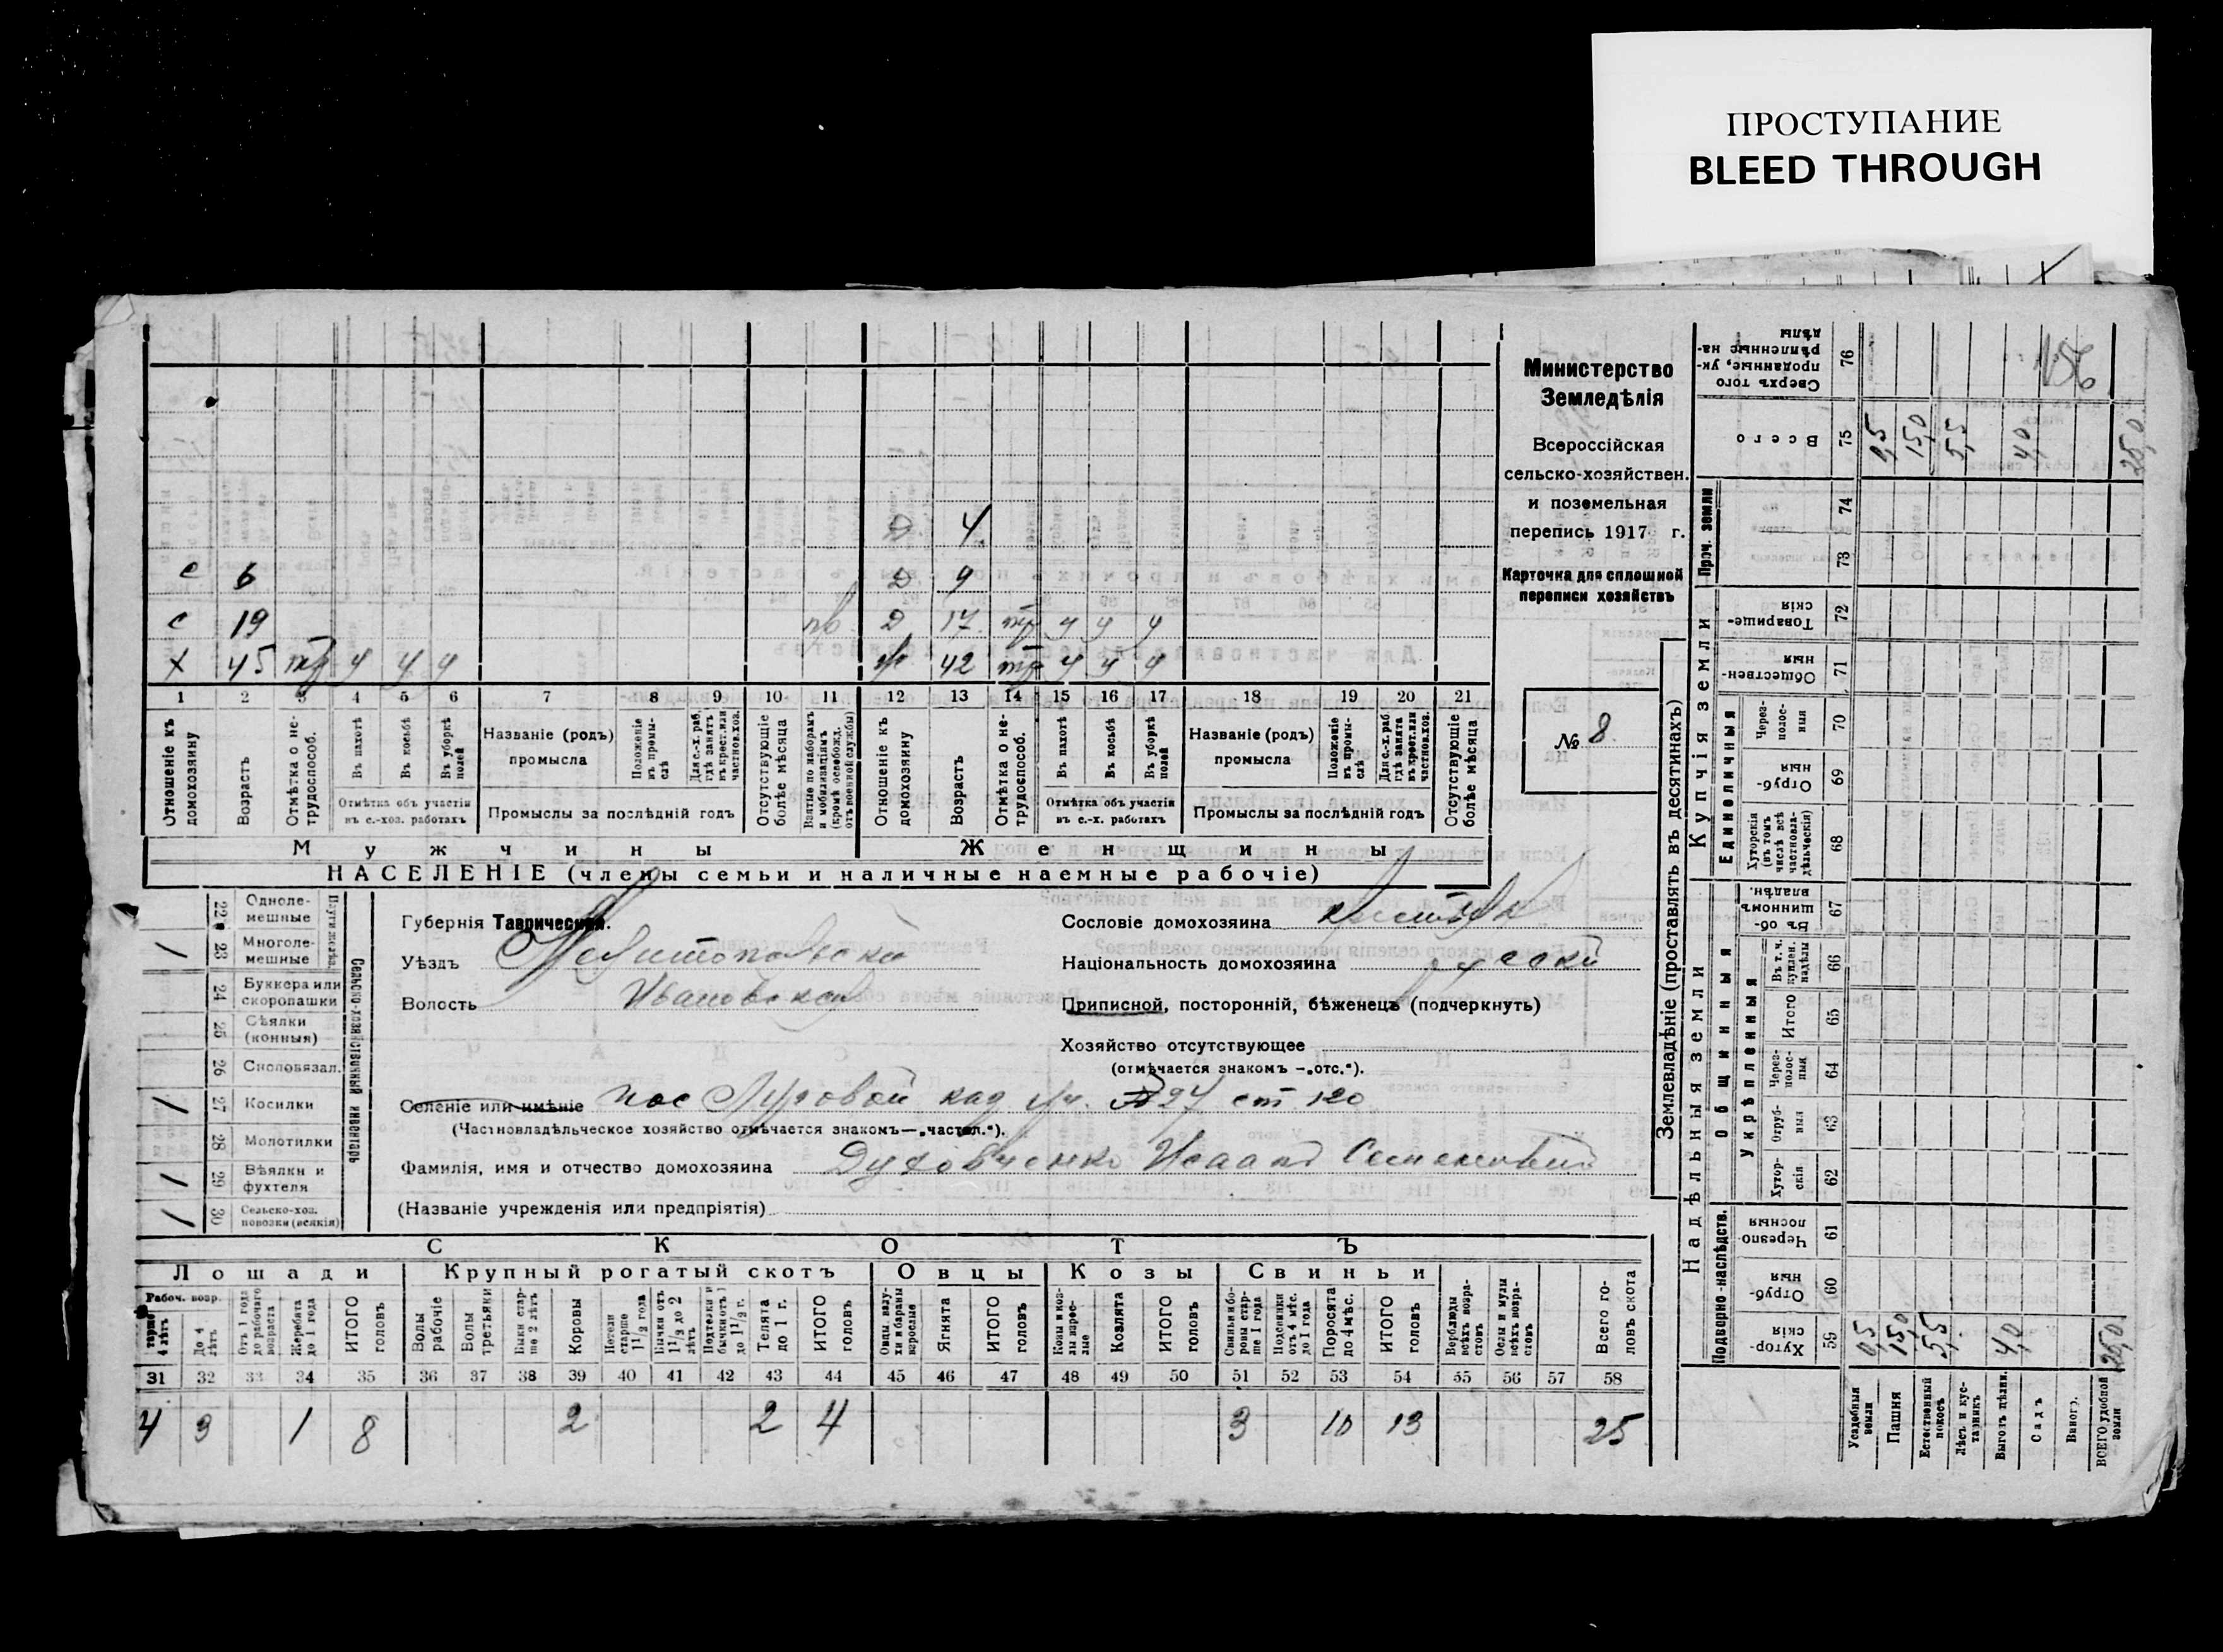 ПРОСТУПАНИЕ
BLEED THROUGH
Министерство
Земледѣлія
Всероссійская
сельско-хозяйствен.
и поземельная
перепись 1917 г.
Карточка для сплошной
переписи хозяйствъ
№ 8
Д 4
с 6 Д 9
с 19 Д 17 9 9 9
х 45 9 9 9 ж 42 9 9 9
1 2 3 4 5 6 7 8 9 10 11 12 13 14 15 16 17 18 19 20 21
Отношеніе къ домохозяину
Возрастъ
Отмѣтка о не-трудоспособ.
Въ пахотѣ
Въ косьбѣ
Въ уборкѣ полей
Отмѣтка объ участіи въ с.-хоз. работахъ
Названіе (родъ) промысла
Положеніе въ промы-слѣ
Для с.-х. раб. гдѣ занятъ въ крест. или частнов. хоз.
Промыслы за послѣдній годъ
Отсутствующіе болѣе мѣсяца
Взятые по наборамъ и мобилизаціямъ (кромѣ освобожд. отъ военной службы)
Отношеніе къ домохозяину
Возрастъ
Отмѣтка о не-трудоспособ.
Въ пахотѣ
Въ косьбѣ
Въ уборкѣ полей
Отмѣтка объ участіи въ с.-х. работахъ
Названіе (родъ) промысла
Положеніе въ промы-слѣ
Для с.-х. раб. гдѣ занята въ крест. или частнов. хоз.
Промыслы за послѣдній годъ
Отсутствующіе болѣе мѣсяца
Мужчины Женщины
НАСЕЛЕНІЕ (члены семьи и наличные наемные рабочіе)
22 Одноле-мешные
23 Многоле-мешные
24 Буккера или скоропашки
25 Сѣялки (конныя)
26 Сноповязал.
27 Косилки
28 Молотилки
29 Вѣялки и фухтеля
30 Сельско-хоз. повозки (всякія)
Сельско-хозяйственный инвентарь
Губернія Таврическая.
Уѣздъ Мелитопольскій
Волость Ивановская
Сословіе домохозяина
Національность домохозяина русскій
Приписной, посторонній, бѣженецъ (подчеркнуть)
Хозяйство отсутствующее
(отмѣчается знакомъ —„отс.“).
Селеніе или имѣніе пос Луговой над уч. 27 ст 120
(Частновладѣльческое хозяйство отмѣчается знакомъ—„частвл.“).
Фамилія, имя и отчество домохозяина Духовченко Исаакъ Семеновичъ
(Названіе учрежденія или предпріятія)
СКОТЪ
Лошади Крупный рогатый скотъ Овцы Козы Свиньи
Рабоч. возр.
старше 4 лѣтъ
До 4 лѣтъ
Отъ 1 года до рабочаго возраста
Жеребята до 1 года
ИТОГО головъ
Волы рабочіе
Волы третьяки
Быки стар-ше 2 лѣтъ
Коровы
Нетели старше 1½ года
Бычки отъ 1½ до 2 лѣтъ
Подтелки и бычки отъ 1 до 1½ г.
Телята до 1 г.
ИТОГО головъ
Овцы, валу-хи и бараны взрослые
Ягнята
ИТОГО головъ
Козы и коз-лы взрос-лые
Козлята
ИТОГО головъ
Свиньи и бо-ровы стар-ше 1 года
Подсвинки отъ 4 мѣс. до 1 года
Поросята до 4 мѣс.
ИТОГО головъ
Верблюды всѣхъ возра-стовъ
Ослы и мулы всѣхъ возра-стовъ
Всего го-ловъ скота
31 32 33 34 35 36 37 38 39 40 41 42 43 44 45 46 47 48 49 50 51 52 53 54 55 56 57 58
4 3 1 8 2 2 4 3 10 13 25
Землевладѣніе (проставлять въ десятинахъ)
Надѣльныя земли
Купчія земли
Проч. земли
Подворно-наслѣдств.
Общинныя
Укрѣпленныя
Единоличныя
59 Хутор-скія
60 Отруб-ныя
61 Черезпо-лосныя
62 Хутор-скія
63 Отруб-ныя
64 Через-полос-ныя
65 Итого
66 Въ т. ч. куплен. надѣлы
67 Въ об-щинномъ владѣн.
68 Хуторскія (въ томъ числѣ всѣ частновла-дѣльческія)
69 Отруб-ныя
70 Через-полос-ныя
71 Обществен-ныя
72 Товарище-скія
73
74
75 Всего
76 Сверхъ того проданные, ук-рѣпленные на-дѣлы
Усадебныя земли 0,5 0,5
Пашня 15,0 15,0
Естественный покосъ 5,5 5,5
Лѣсъ и кус-тарникъ
Выгонъ дѣлин. 4,0 4,0
Садъ
Виногр.
ВСЕГО удобной земли 25,0 25,0
156